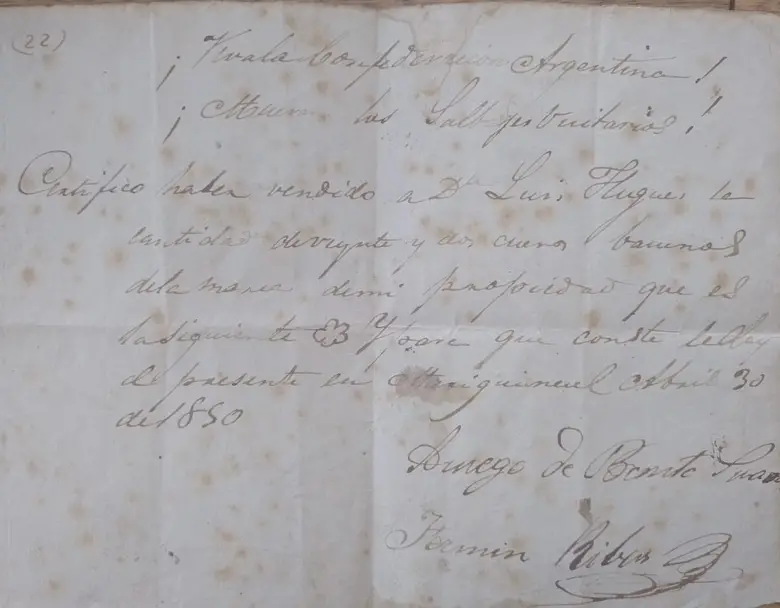 (22)
¡Viva la Confederacion Argentina!
¡Mueran los Salbajes Unitarios!
Certifico haber vendido a Dn Luis Hugues la
cantidad de veynte y dos cueros bacunos
de la marca de mi propiedad que es
la siguiente Y para que conste le doy
el presente en Abril 30
de 1850
A ruego de Benito Suar
Fermin Ribas